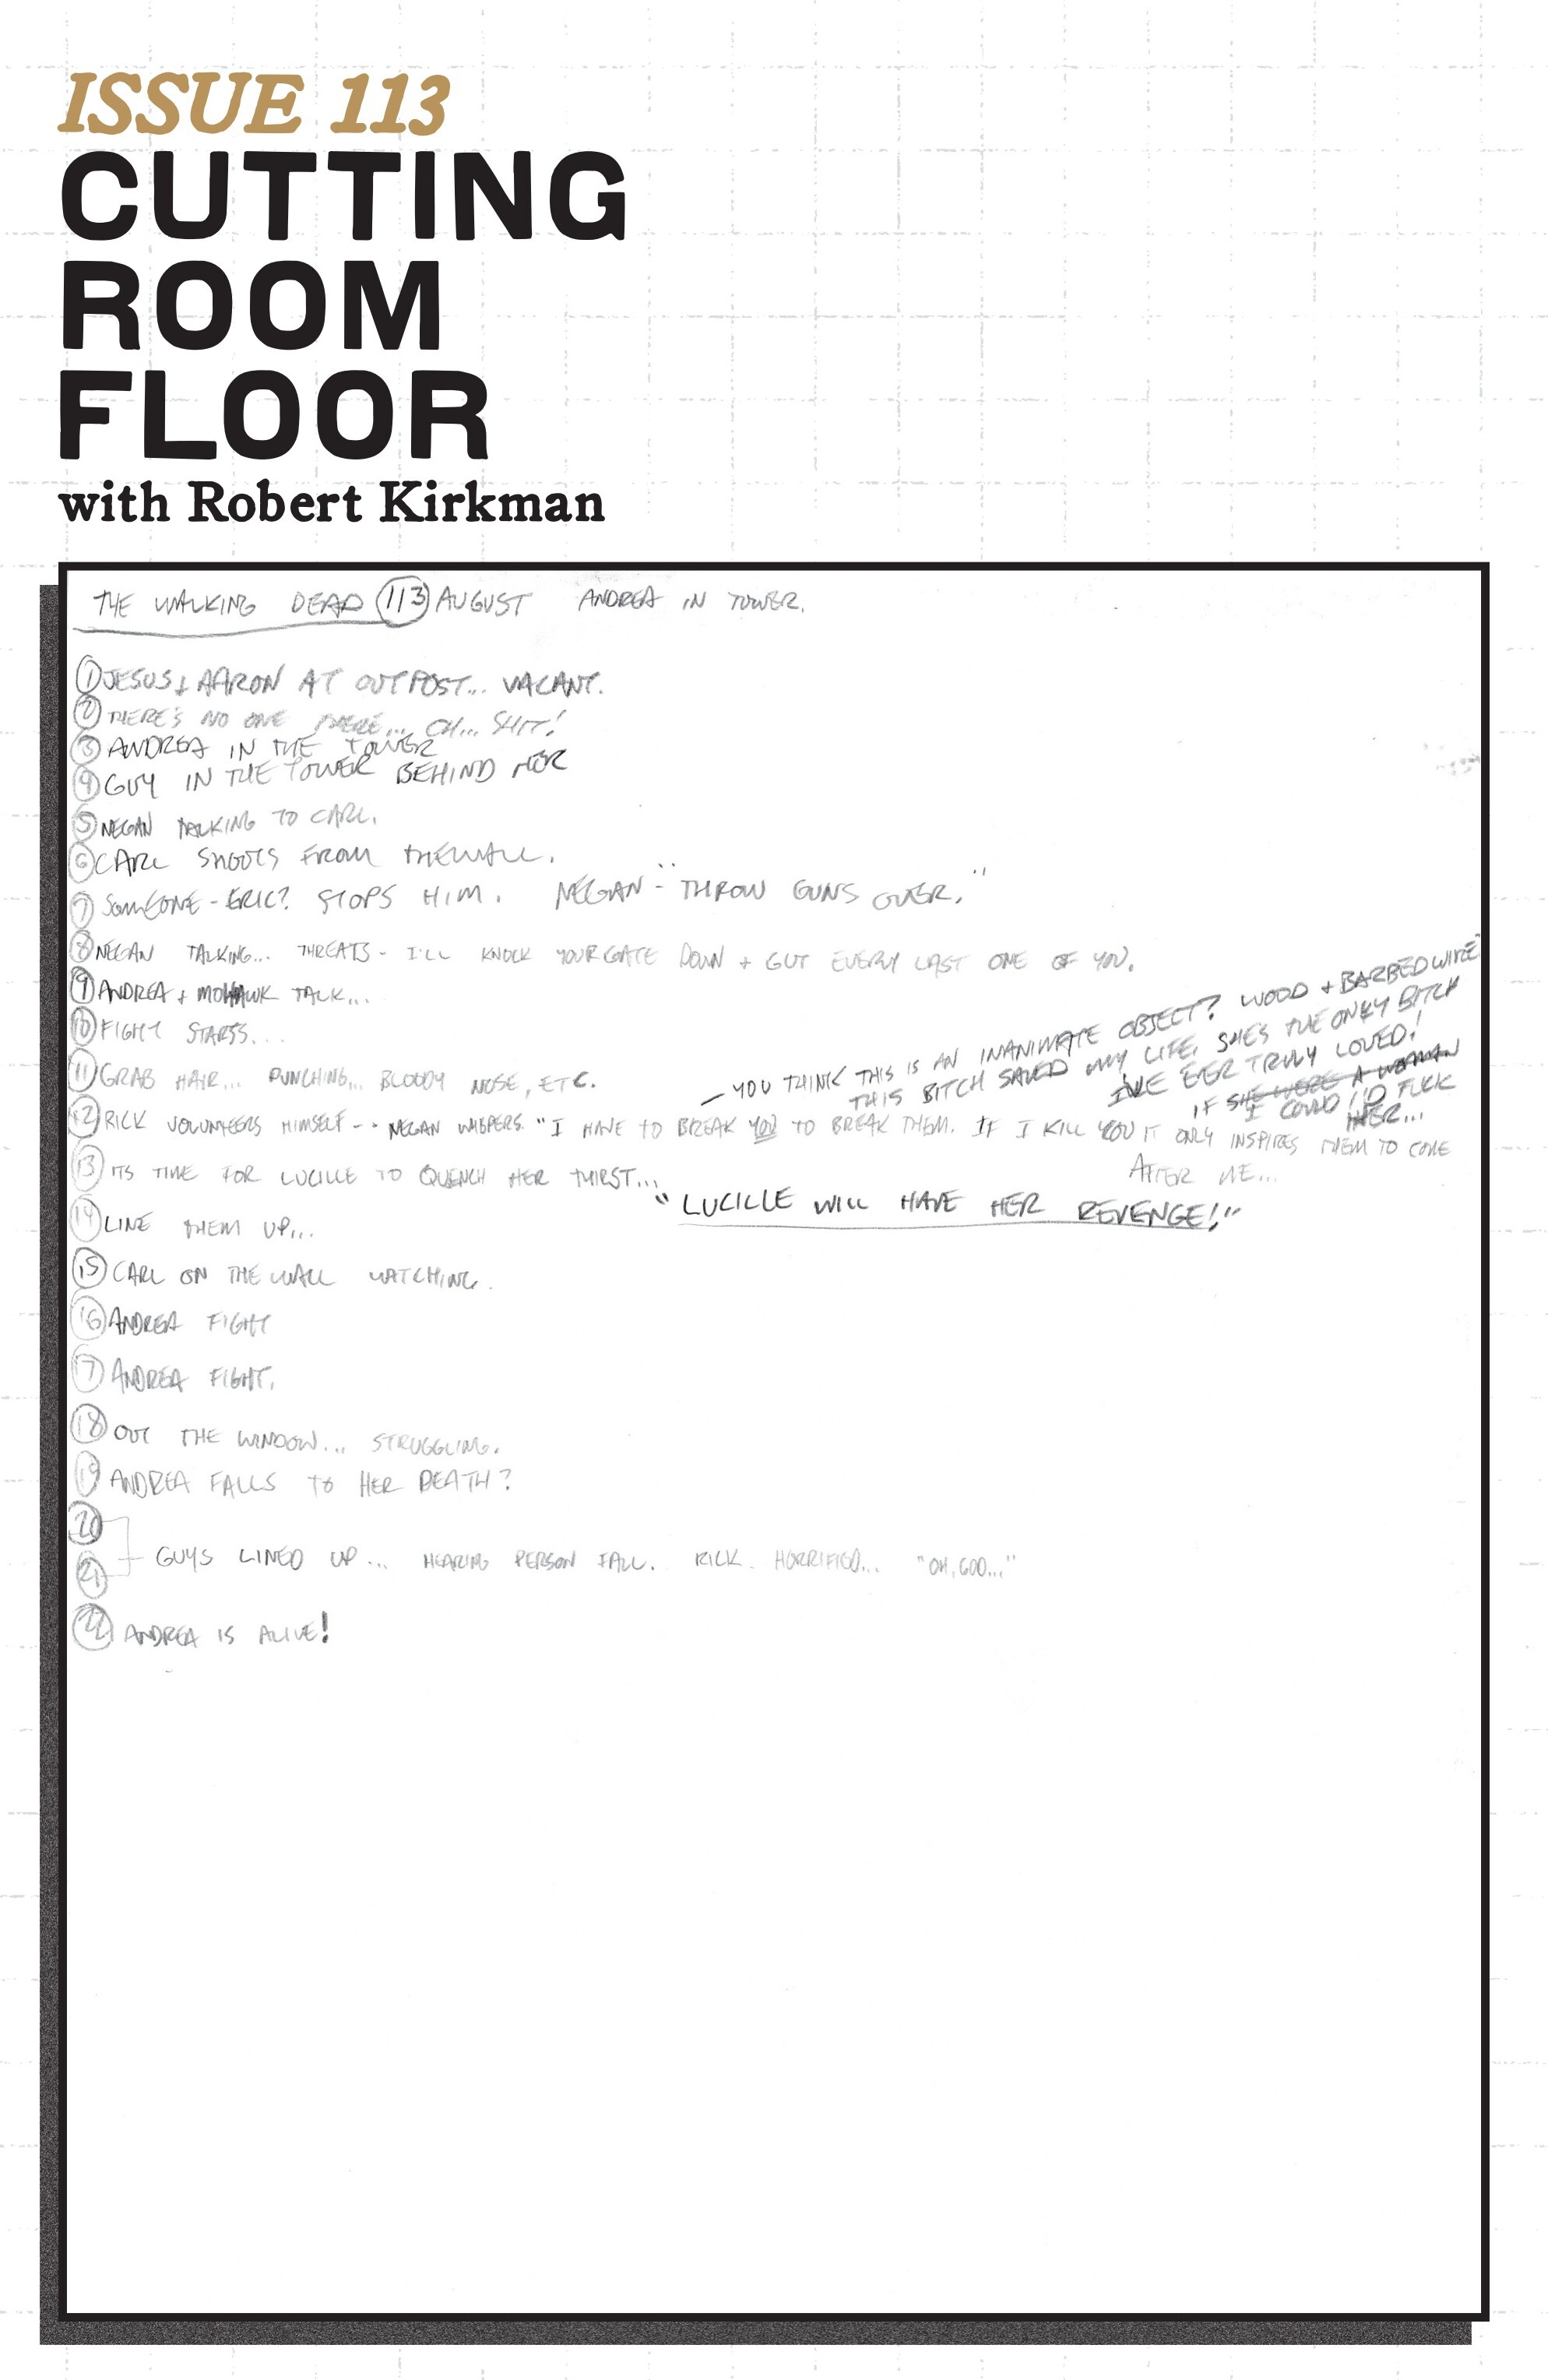 ISSUE 113
CUTTING
ROOM
FLOOR
with Robert Kirkman
THE WALKING DEAD 113 AUGUST ANDREA IN TOWER.
1 JESUS + AARON AT OUTPOST... VACANT.
2 THERE'S NO ONE THERE... OH... SHIT!
3 ANDREA IN THE TOWER
4 GUY IN THE TOWER BEHIND HER
5 NEGAN TALKING TO CARL.
6 CARL SHOOTS FROM THE WALL.
7 SOMEONE - ERIC? STOPS HIM. NEGAN - "THROW GUNS OVER."
8 NEGAN TALKING... THREATS - I'LL KNOCK YOUR GATE DOWN + GUT EVERY LAST ONE OF YOU.
9 ANDREA + MOHAWK TALK...
10 FIGHT STARTS...
11 GRAB HAIR... PUNCHING... BLOODY NOSE, ETC.
— YOU THINK THIS IS AN INANIMATE OBJECT? WOOD + BARBEDWIRE?
THIS BITCH SAVED MY LIFE. SHE'S THE ONLY BITCH
I'VE EVER TRULY LOVED!
IF SHE WERE A WOMAN
I COULD I'D FUCK
HER...
12 RICK VOLUNTEERS HIMSELF -- NEGAN WHISPERS "I HAVE TO BREAK YOU TO BREAK THEM. IF I KILL YOU IT ONLY INSPIRES THEM TO COME
AFTER ME...
13 ITS TIME FOR LUCILLE TO QUENCH HER THIRST...
"LUCILLE WILL HAVE HER REVENGE!"
14 LINE THEM UP...
15 CARL ON THE WALL WATCHING.
16 ANDREA FIGHT
17 ANDREA FIGHT.
18 OUT THE WINDOW... STRUGGLING.
19 ANDREA FALLS TO HER DEATH?
20
21 GUYS LINED UP... HEARING PERSON FALL. RICK HORRIFIED... "OH, GOD..."
22 ANDREA IS ALIVE!